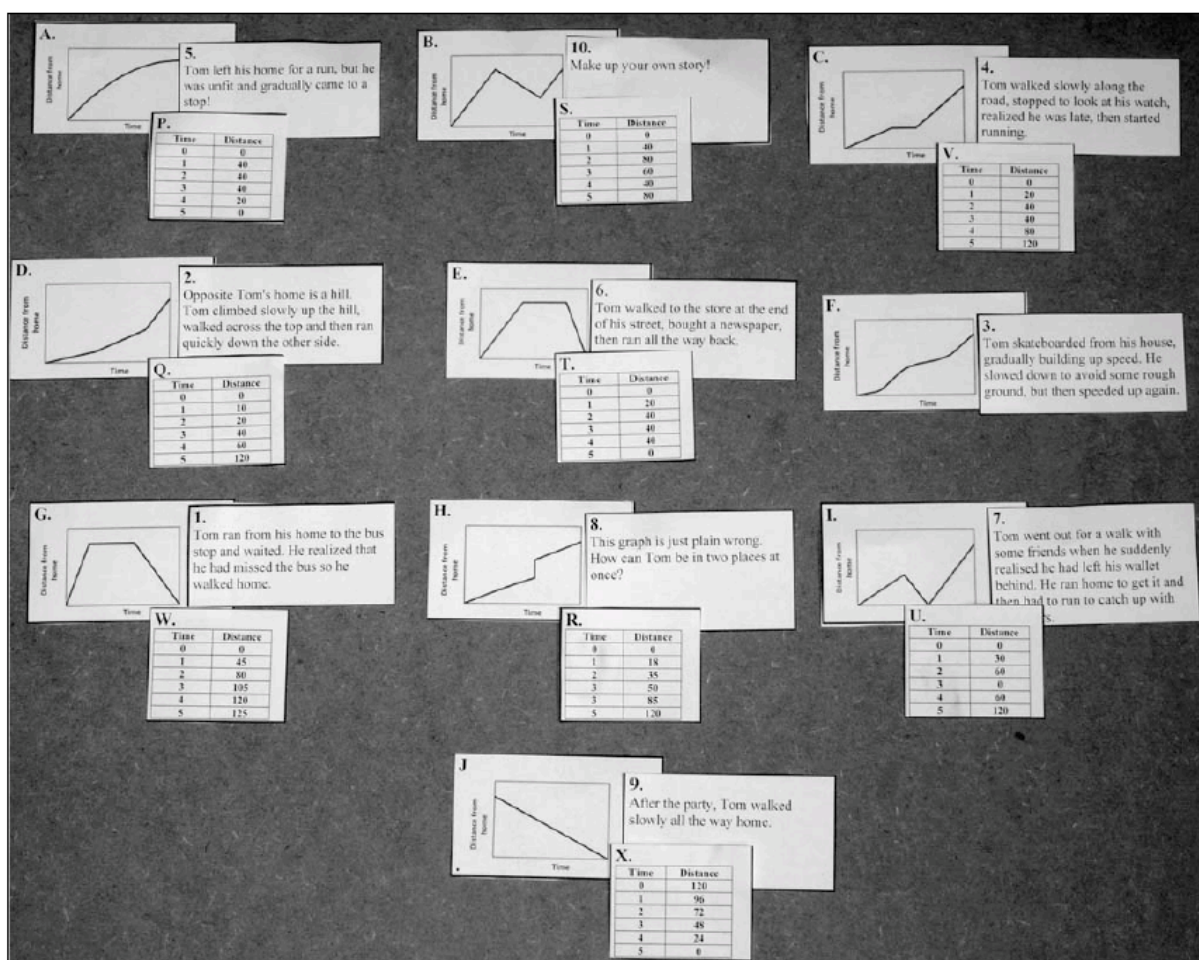 A.
Distance from
home
Time
5.
Tom left his home for a run, but he
was unfit and gradually came to a
stop!
P.
Time Distance
0 0
1 40
2 40
3 40
4 20
5 0
B.
Distance from
home
Time
10.
Make up your own story!
S.
Time Distance
0 0
1 40
2 80
3 60
4 40
5 80
C.
Distance from
home
Time
4.
Tom walked slowly along the
road, stopped to look at his watch,
realized he was late, then started
running.
V.
Time Distance
0 0
1 20
2 40
3 40
4 80
5 120
D.
Distance from
home
Time
2.
Opposite Tom's home is a hill.
Tom climbed slowly up the hill,
walked across the top and then ran
quickly down the other side.
Q.
Time Distance
0 0
1 10
2 20
3 40
4 60
5 120
E.
Distance from
home
6.
Tom walked to the store at the end
of his street, bought a newspaper,
then ran all the way back.
T.
Time Distance
0 0
1 20
2 40
3 40
4 40
5 0
F.
Distance from
home
Time
3.
Tom skateboarded from his house,
gradually building up speed. He
slowed down to avoid some rough
ground, but then speeded up again.
G.
Distance from
home
Time
1.
Tom ran from his home to the bus
stop and waited. He realized that
he had missed the bus so he
walked home.
W.
Time Distance
0 0
1 45
2 80
3 105
4 120
5 125
H.
Distance from
home
Time
8.
This graph is just plain wrong.
How can Tom be in two places at
once?
R.
Time Distance
0 0
1 18
2 35
3 50
3 85
5 120
I.
Distance from
home
Time
7.
Tom went out for a walk with
some friends when he suddenly
realised he had left his wallet
behind. He ran home to get it and
then had to run to catch up with
U.
Time Distance
0 0
1 30
2 60
3 0
4 60
5 120
J
Distance from
home
Time
9.
After the party, Tom walked
slowly all the way home.
X.
Time Distance
0 120
1 96
2 72
3 48
4 24
5 0